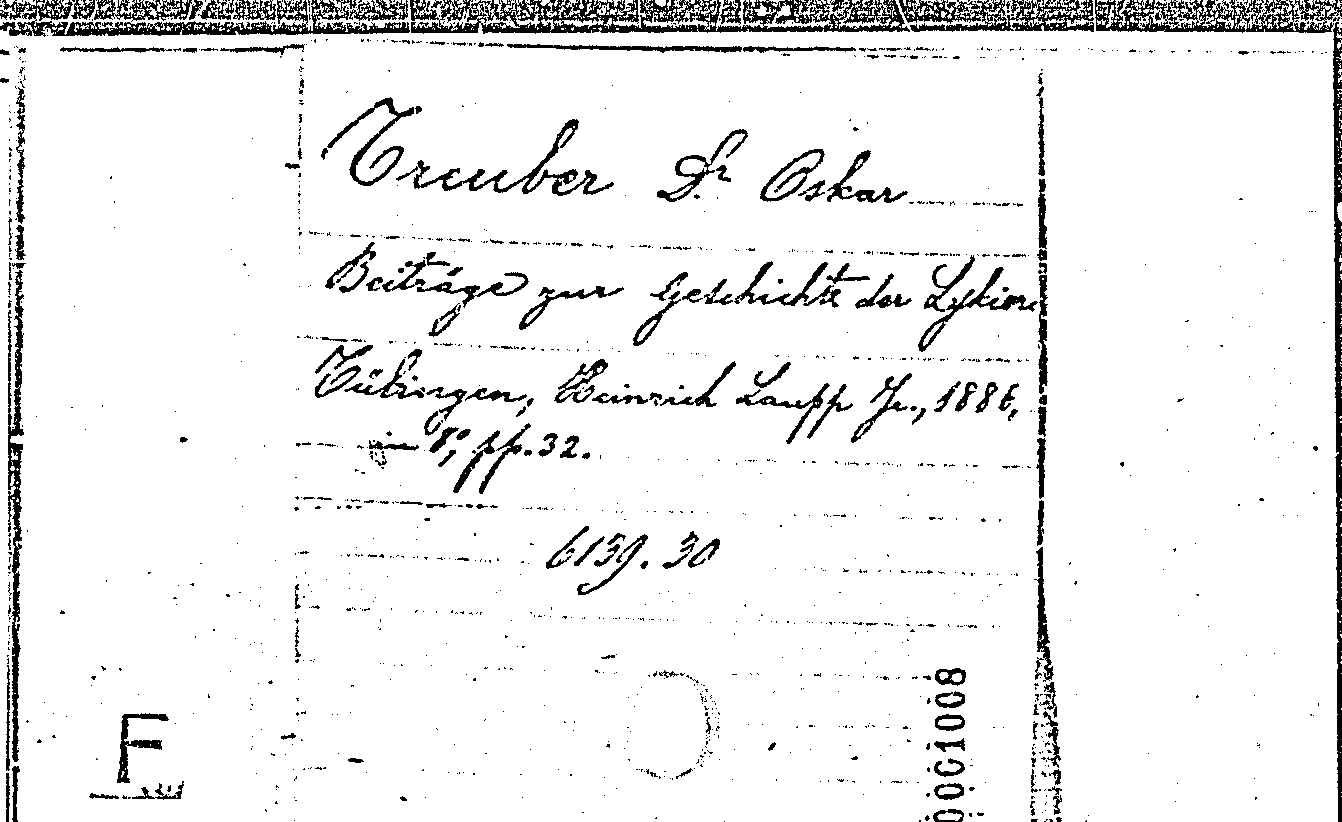 Treuber Dr Oskar
Beiträge zur Geschichte der
Tübingen, Heinrich Laupp Jr., 1886,
in 8°, pp. 32.
6139.30
F